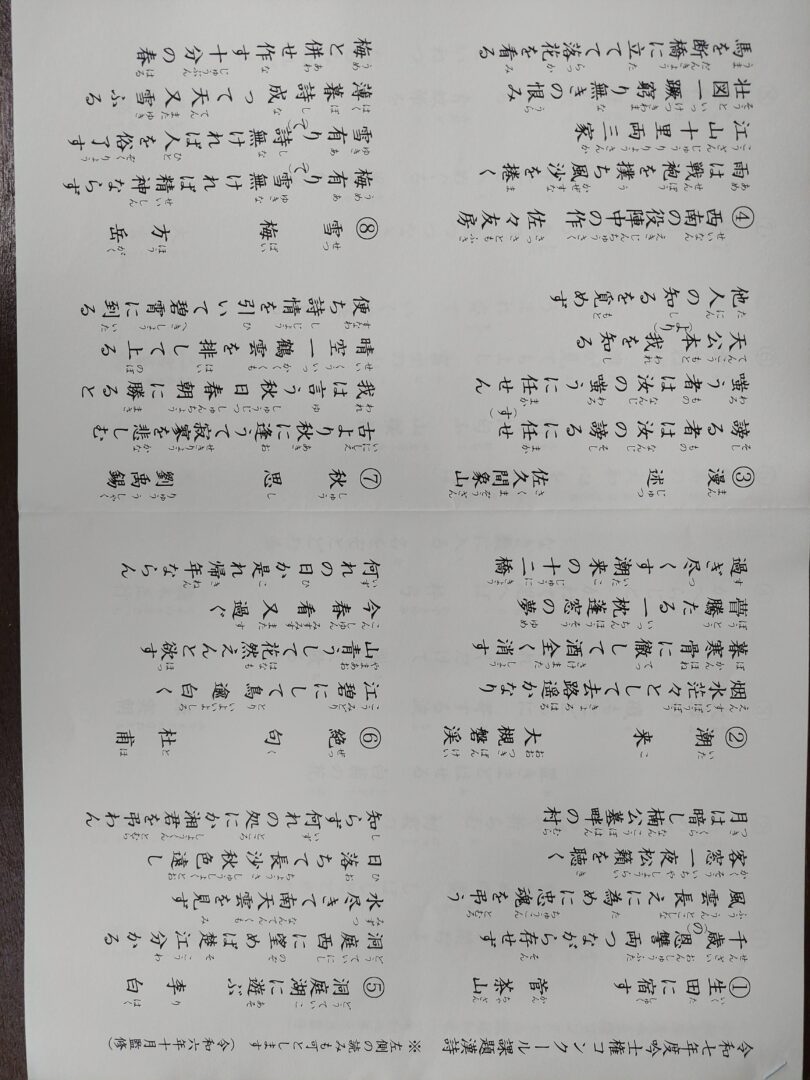 令和七年度吟士権コンクール課題漢詩 ※左側の読みも可とします(令和六年十月監修)
①生田に宿す 菅茶山
千歳恩讐両つながら存せず
風雲長えに為めに忠魂を弔う
客窓一夜松籟を聴く
月は暗し楠公墓畔の村
②潮来 大槻磐渓
烟水茫々として去路遥かなり
暮寒骨に徹して酒全く消す
瞢騰たる一枕蓬窓の夢
過ぎ尽くす潮来の十二橋
③漫述 佐久間象山
謗る者は汝の謗るに任せ
嗤う者は汝の嗤うに任せん
天公本我を知る
他人の知るを覓めず
④西南の役陣中の作 佐々友房
雨は戦袍を撲ち風沙を捲く
江山十里両三家
壮図一蹶窮り無きの恨み
馬を断橋に立てて落花を看る
⑤洞庭湖に遊ぶ 李白
洞庭西に望めば楚江分かる
水尽きて南天雲を見ず
日落ちて長沙秋色遠し
知らず何れの処にか湘君を弔わん
⑥絶句 杜甫
江碧にして鳥逾白く
山青うして花然えんと欲す
今春看又過ぐ
何れの日か是れ帰年ならん
⑦秋思 劉禹錫
古より秋に逢うて寂寥を悲しむ
我は言う秋日春朝に勝ると
晴空一鶴雲を排して上る
便ち詩情を引いて碧霄に到る
⑧雪梅 方岳
梅有り雪無ければ精神ならず
雪有り詩無ければ人を俗了す
薄暮詩成って天又雪ふる
梅と併せ作す十分の春